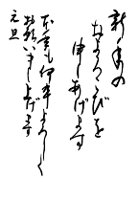 新年の
およろこびを
申しあげます
本年も何卒よろしく
お願いいたし上げます
元旦